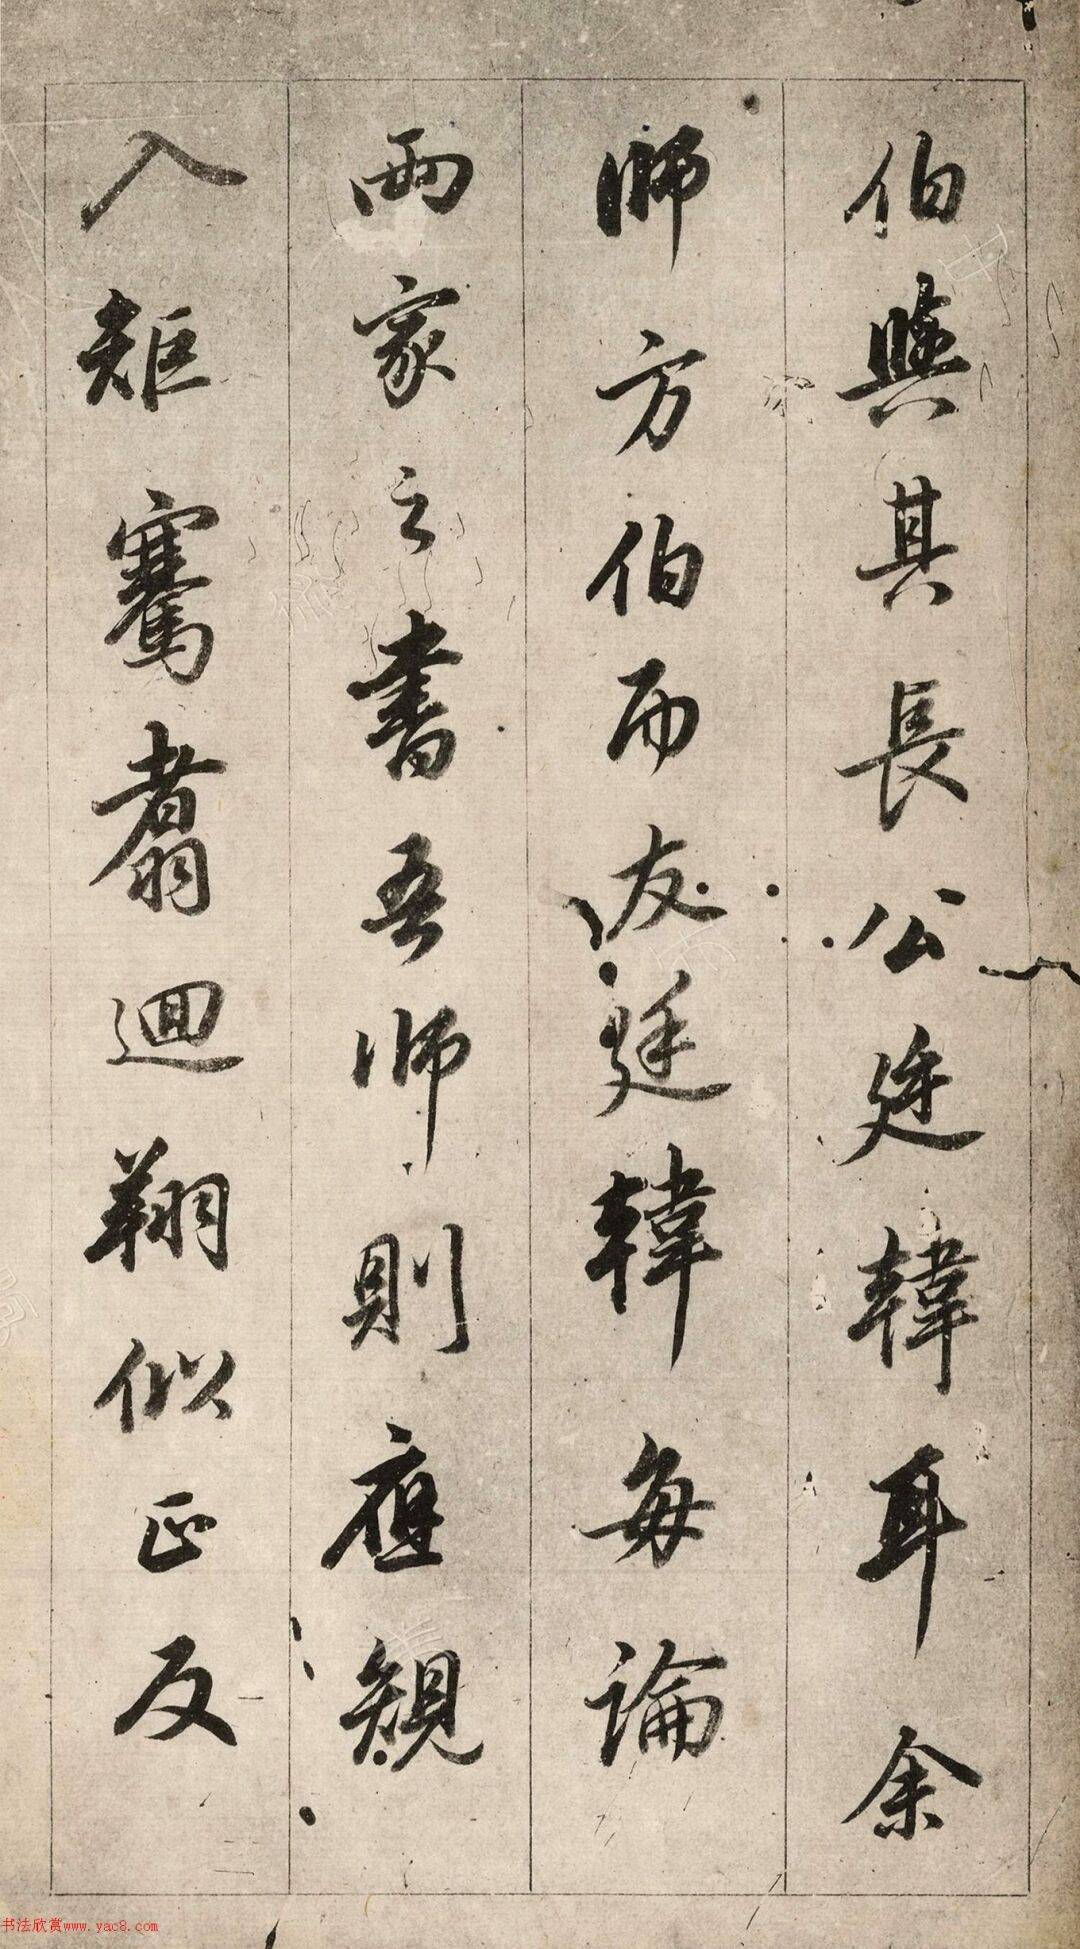 伯與其長公廷韓耳余
師方伯而友廷韓每論
兩家之書吾師則應規
入矩騫翥迴翔似正反
书法欣赏www.yac8.com